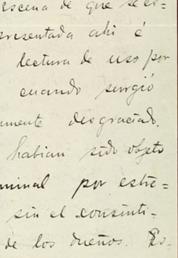 escena de que se o-
presentada ahi é
lectura de uso por
cuando surgió
amente desgraciado.
habian sido objeto
minal por estre-
sin el consenti-
de los dueños. Es-